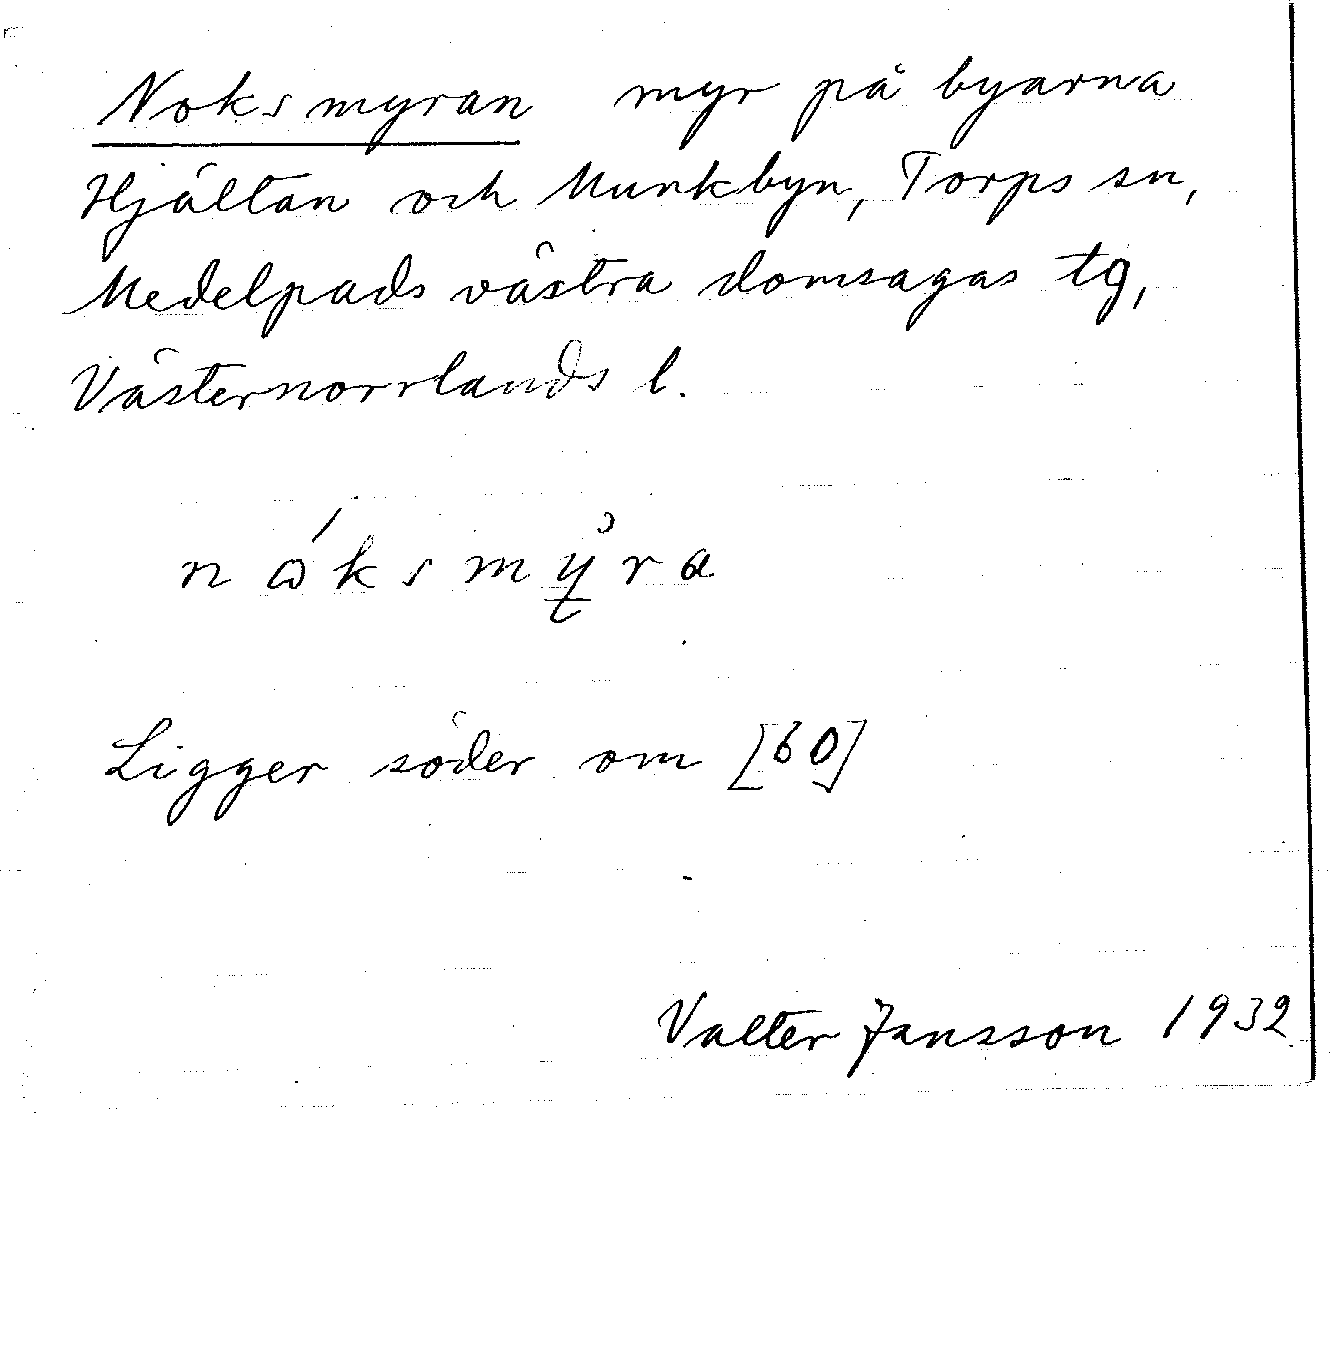 Noksmyran myr på byarna
Hjältan och Munkbyn, Torps sn,
Medelpads västra domsagas tg,
Västernorrlands l.
Ligger söder om [60]
Valter Jansson 1932